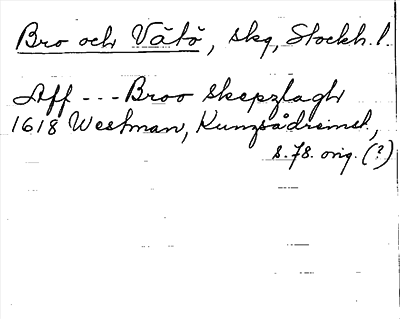 Bro och Vätö, skg, Stockh. l.
Aff --- Broo Skepzlagh
1618 Westman, Kungsådremst.,
s. 78. orig. (?)